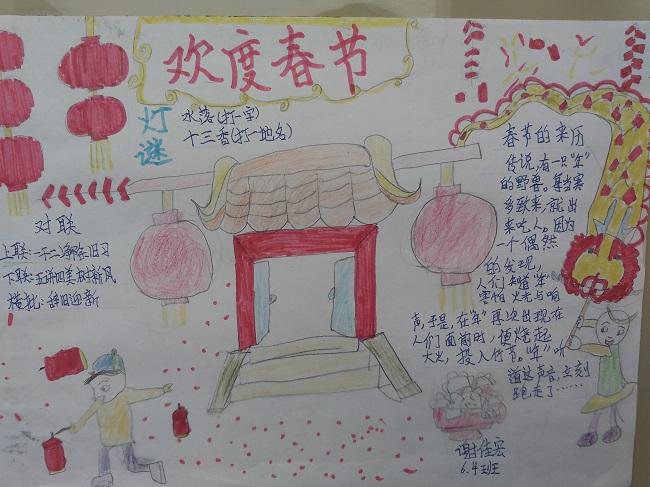 欢度春节
灯谜
水落(打一字)
十三香(打一地名)
对联
上联:一干二净除旧习
下联:五讲四美树新风
横批:辞旧迎新
春节的来历
传说,有一只"年"
的野兽。每当寒
多致来,就出
来吃人。因为
一个偶然
的发现,
人们知道"年"
害怕火光与响
声,于是,在"年"再次出现在
人们面前时,便烧起
大火,投入竹节。"年"听
道这声音,立刻
跑走了······
谢佳宏
6.4班